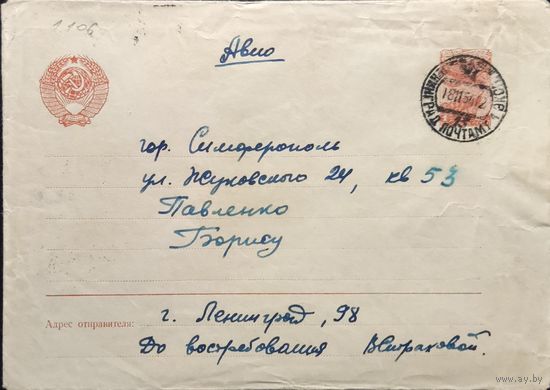 1.10б
Авио
гор. Симферополь
ул. Жуковского 24, кв 53
Павленко
Борису
Адрес отправителя: г. Ленинград, 98
До востребования
ay.by
http://www.ay.by/